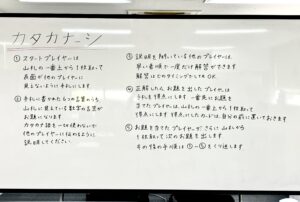 カタカナーシ
① スタートプレイヤーは
山札の一番上から1枚取って
表面が他のプレイヤーに
見えないように手札にします
② 手札に書かれた6つの言葉のうち
山札に見えている数字の言葉が
お題になります
カタカナ語を一切使わないで
他のプレイヤーに伝わるように
説明してください
③ 説明を聞いている他のプレイヤーは
早い者順で一度だけ解答ができます
解答はどのタイミングでしてもOK
④ 正解したらお題を出したプレイヤーは
手札を得点にします 一番先にお題を
当てたプレイヤーは、山札の一番上から1枚取って
得点にします 得点にしたカードは、自分の前に置いておきます
⑤ お題を当てたプレイヤーが、さらに山札から
1枚取って次のお題を出します
その後の手順は①〜⑤をくり返します